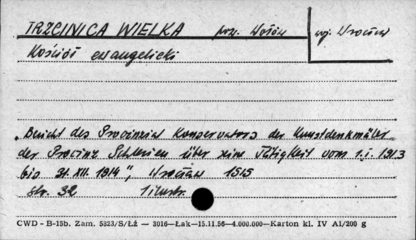 TRZCINICA WIELKA pow. Wołów woj. Wrocław
Kościół ewangelicki
„Bericht des Provinzial Konservators der Kunstdenkmäler
der Provinz Schlesien über seine Tätigkeit vom 1.I. 1913
bis 31. XII. 1914", Wrocław 1915
str. 32 1 ilustr.
CWD - B-15b. Zam. 5823/S/Łż — 3016—Łak—15.11.56—4.000.000—Karton kl. IV A1/200 g